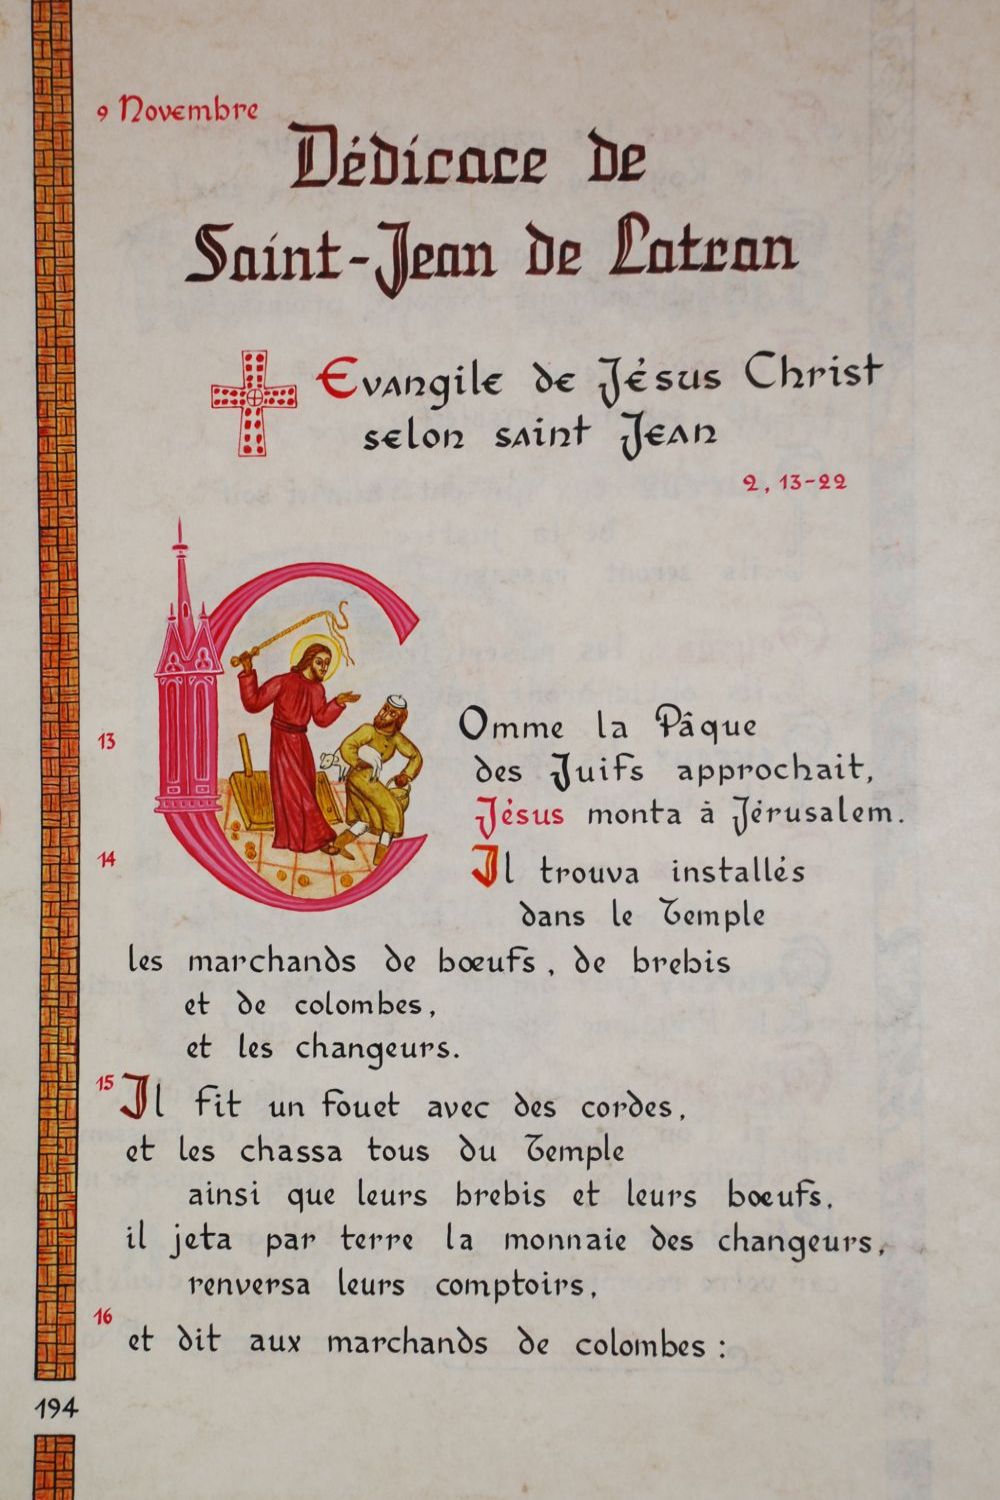 9 Novembre
Dédicace de
Saint-Jean de Latran
Evangile de Jésus Christ
selon saint Jean
2, 13-22
13
Comme la Pâque
des Juifs approchait,
Jésus monta à Jérusalem.
14
Il trouva installés
dans le Temple
les marchands de bœufs, de brebis
et de colombes,
et les changeurs.
15 Il fit un fouet avec des cordes,
et les chassa tous du Temple
ainsi que leurs brebis et leurs bœufs,
il jeta par terre la monnaie des changeurs,
renversa leurs comptoirs,
16
et dit aux marchands de colombes :
194